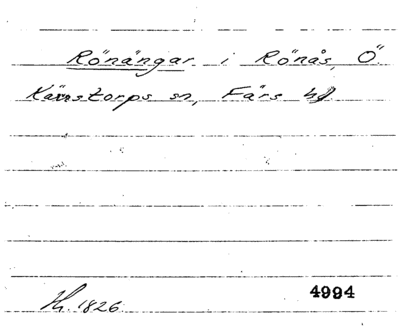 Rönängar i Rönås, Ö
Kärrstorps sn, Färs hd
1826
4994